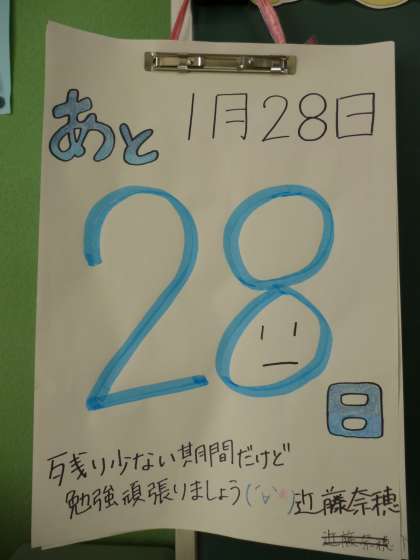 1月28日
あと
28
日
残り少ない期間だけど
勉強頑張りましょう(´∀`*)近藤奈穂
近藤奈穂